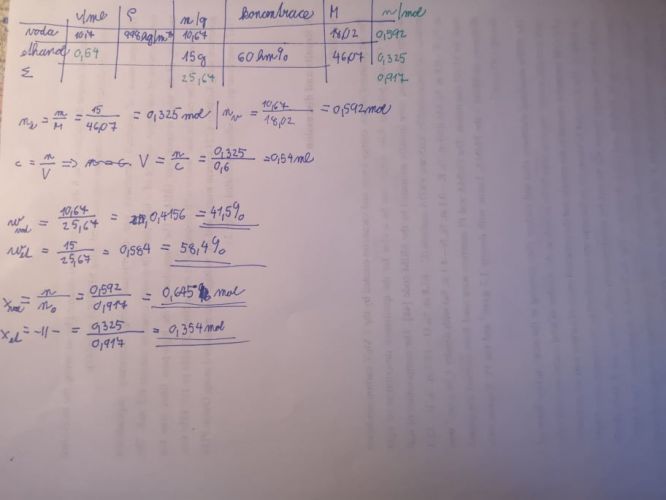 V/ml ρ m/g koncentrace M n/mol
voda 10,7 998 kg/m³ 10,67 18,02 0,592
ethanol 0,54 15g 60 hm% 46,07 0,325
Σ 25,67 0,917
n₂ = m/M = 15/46,07 = 0,325 mol | nᵥ = 10,67/18,02 = 0,592 mol
c = n/V => V = n/c = 0,325/0,6 = 0,54 ml
w_vod = 10,67/25,67 = 0,4156 = 41,5%
w_el = 15/25,67 = 0,584 = 58,4%
x_vod = n/n₀ = 0,592/0,917 = 0,645 mol
x_el = -||- = 0,325/0,917 = 0,354 mol